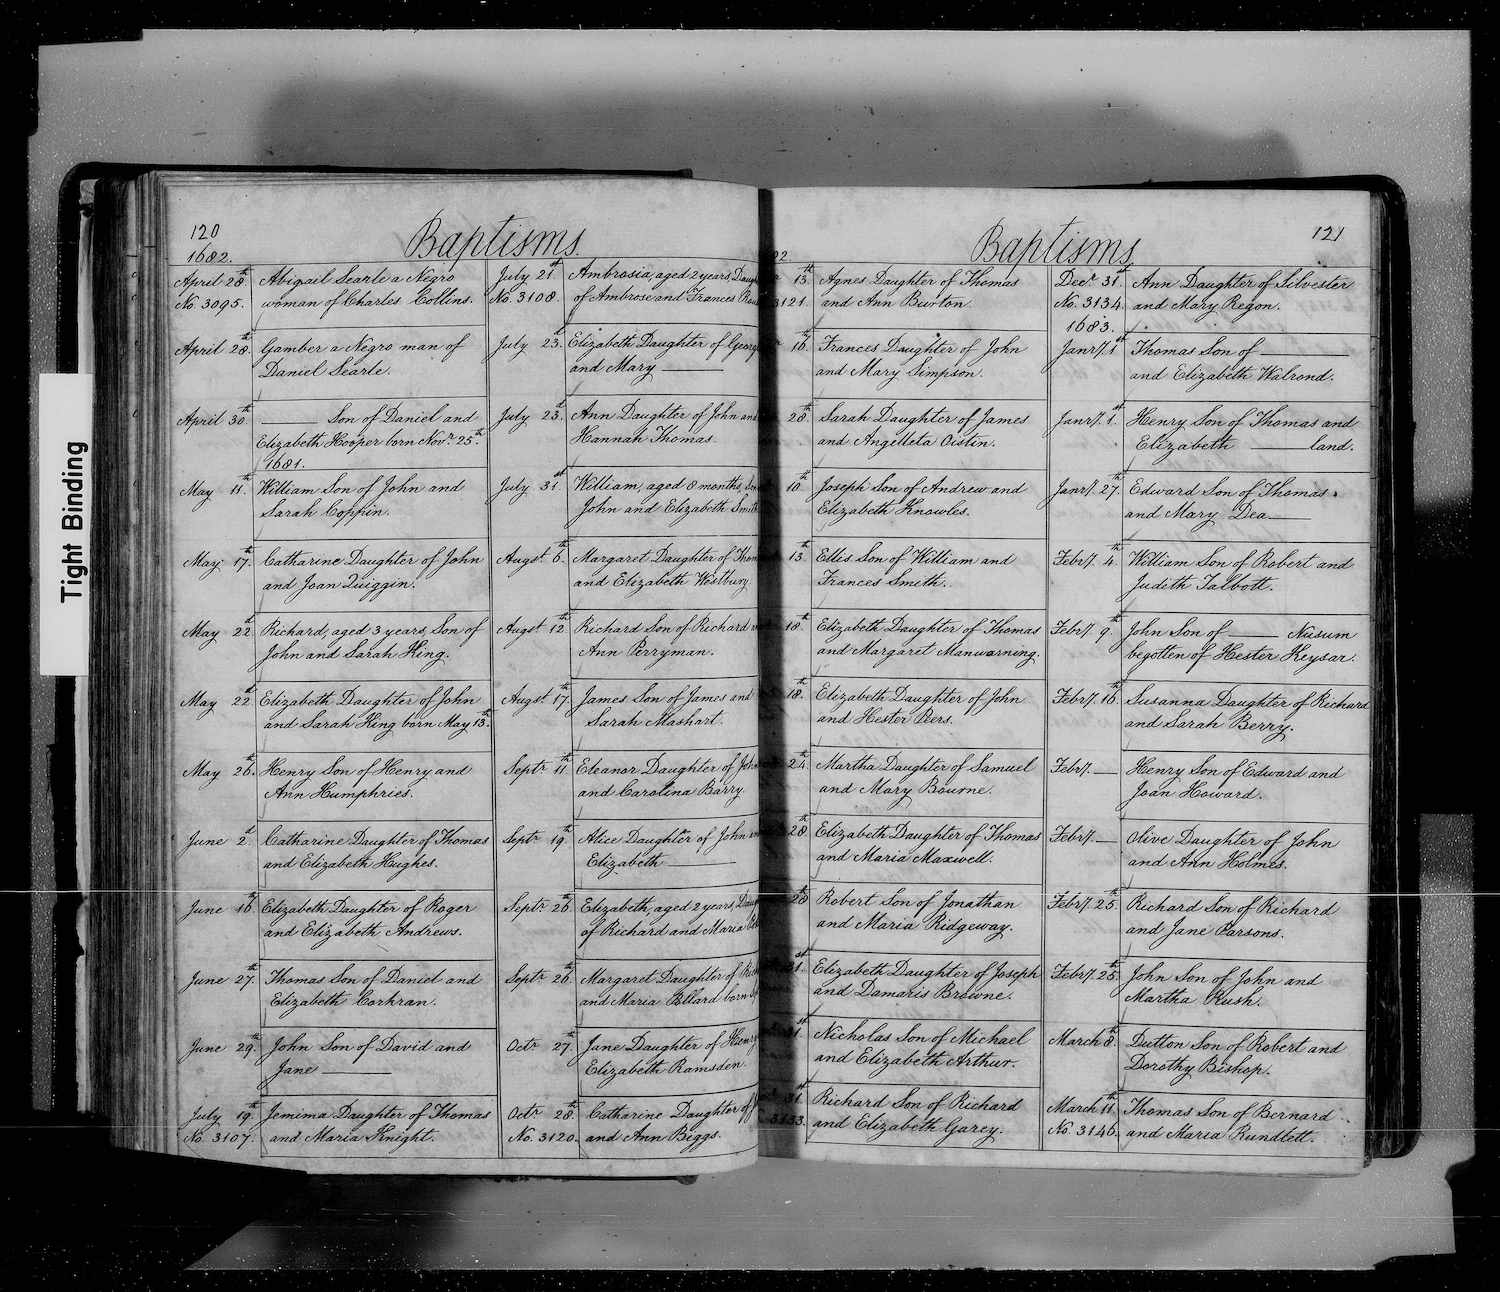 Tight Binding
120
Baptisms.
1682.
April 28th Abigail Searle a Negro
No. 3095. woman of Charles Collins.
April 28th Gamber a Negro man of
Daniel Searle.
April 30th ______ Son of Daniel and
Elizabeth Hooper born Novr. 25th.
1681.
May 11th William Son of John and
Sarah Coppin.
May 17th Catharine Daughter of John
and Joan Quiggin.
May 22d Richard, aged 3 years, Son of
John and Sarah King.
May 22d Elizabeth Daughter of John
and Sarah King born May 13th.
May 26th Henry Son of Henry and
Ann Humphries.
June 2d Catharine Daughter of Thomas
and Elizabeth Hughes.
June 16th Elizabeth Daughter of Roger
and Elizabeth Andrews.
June 27th Thomas Son of Daniel and
Elizabeth Corhran.
June 29th John Son of David and
Jane ______
July 19th Jemima Daughter of Thomas
No. 3107. and Maria Knight.
July 21st Ambrosia, aged 2 years,
No. 3108. of Ambrose and Frances
July 23d Elizabeth Daughter of
and Mary ______
July 23d Ann Daughter of John and
Hannah Thomas.
July 31st William, aged 8 months,
John and Elizabeth
Augst. 6th Margaret Daughter of
and Elizabeth Westbury
Augst. 12th Richard Son of Richard
Ann Perryman.
Augst. 17th James Son of James and
Sarah Mashart.
Septr. 11th Eleanor Daughter of
and Carolina Barry.
Septr. 19th Alice Daughter of John
Elizabeth ______
Septr. 26th Elizabeth, aged 2 years,
of Richard and Maria
Septr. 26th Margaret Daughter of
and Maria Pollard born
Octr. 27th Jane Daughter of Henry
Elizabeth Ramsden.
Octr. 28th Catharine Daughter of
No. 3120. and Ann Biggs.
121
Baptisms
13th Agnes Daughter of Thomas
3121. and Ann Burton.
16th Frances Daughter of John
and Mary Simpson.
28th Sarah Daughter of James
and Angilleta Oistin.
10th Joseph Son of Andrew and
Elizabeth Knowles.
13th Ellis Son of William and
Frances Smith.
18th Elizabeth Daughter of Thomas
and Margaret Manwarning.
18th Elizabeth Daughter of John
and Hester Peers.
24th Martha Daughter of Samuel
and Mary Bourne.
28th Elizabeth Daughter of Thomas
and Maria Maxwell.
28th Robert Son of Jonathan
and Maria Ridgeway.
31st Elizabeth Daughter of Joseph
and Damaris Browne.
31st Nicholas Son of Michael
and Elizabeth Arthur.
31st Richard Son of Richard
3133. and Elizabeth Garey.
Decr. 31st Ann Daughter of Silvester
No. 3134. and Mary Regon.
1683.
Janry. 1st Thomas Son of ______
and Elizabeth Walrond.
Janry. 1st Henry Son of Thomas and
Elizabeth ______land.
Janry. 27th Edward Son of Thomas
and Mary Dea____
Febry. 4th William Son of Robert and
Judith Talbott.
Febry. 9th John Son of ______ Nusum
begotten of Hester Keysar.
Febry. 16th Susanna Daughter of Richard
and Sarah Berry.
Febry. __ Henry Son of Edward and
Joan Howard.
Febry. __ Olive Daughter of John
and Ann Holmes.
Febry. 25th Richard Son of Richard
and Jane Parsons.
Febry. 25th John Son of John and
Martha Rush.
March 8th Dutton Son of Robert and
Dorothy Bishop.
March 11th Thomas Son of Bernard
No. 3146. and Maria Rundlett.